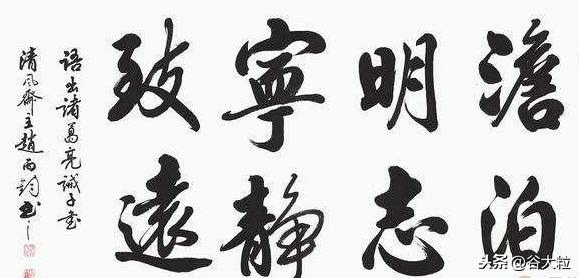 澹泊
明志
寧静
致遠
語出諸葛亮誡子書
清风齋主趙雨鈞书之
头条 @谷大粒